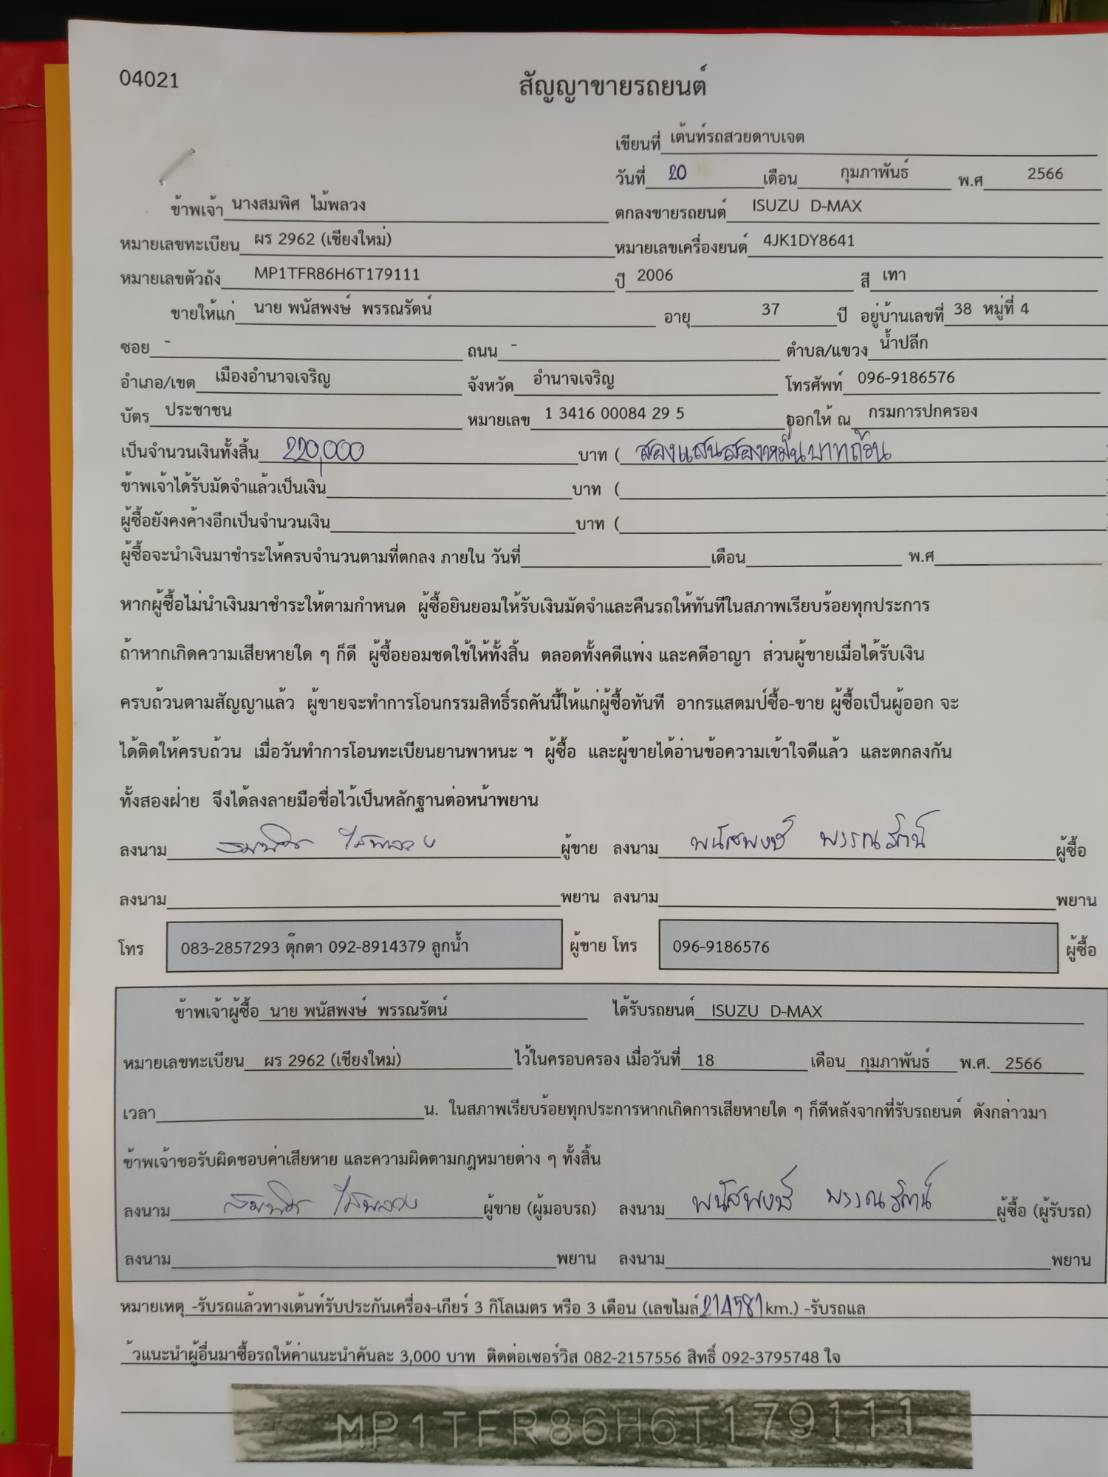 04021
สัญญาขายรถยนต์
เขียนที่ เต้นท์รถสวยดาบเจต
วันที่ 20 เดือน กุมภาพันธ์ พ.ศ 2566
ข้าพเจ้า นางสมพิศ ไม้พลวง ตกลงขายรถยนต์ ISUZU D-MAX
หมายเลขทะเบียน ผร 2962 (เชียงใหม่) หมายเลขเครื่องยนต์ 4JK1DY8641
หมายเลขตัวถัง MP1TFR86H6T179111 ปี 2006 สี เทา
ขายให้แก่ นาย พนัสพงษ์ พรรณรัตน์ อายุ 37 ปี อยู่บ้านเลขที่ 38 หมู่ที่ 4
ซอย - ถนน - ตำบล/แขวง น้ำปลีก
อำเภอ/เขต เมืองอำนาจเจริญ จังหวัด อำนาจเจริญ โทรศัพท์ 096-9186576
บัตร ประชาชน หมายเลข 1 3416 00084 29 5 ออกให้ ณ กรมการปกครอง
เป็นจำนวนเงินทั้งสิ้น 220,000 บาท ( สองแสนสองหมื่นบาทถ้วน
ข้าพเจ้าได้รับมัดจำแล้วเป็นเงิน บาท (
ผู้ซื้อยังคงค้างอีกเป็นจำนวนเงิน บาท (
ผู้ซื้อจะนำเงินมาชำระให้ครบจำนวนตามที่ตกลง ภายใน วันที่ เดือน พ.ศ
หากผู้ซื้อไม่นำเงินมาชำระให้ตามกำหนด ผู้ซื้อยินยอมให้รับเงินมัดจำและคืนรถให้ทันทีในสภาพเรียบร้อยทุกประการ
ถ้าหากเกิดความเสียหายใด ๆ ก็ดี ผู้ซื้อยอมชดใช้ให้ทั้งสิ้น ตลอดทั้งคดีแพ่ง และคดีอาญา ส่วนผู้ขายเมื่อได้รับเงิน
ครบถ้วนตามสัญญาแล้ว ผู้ขายจะทำการโอนกรรมสิทธิ์รถคันนี้ให้แก่ผู้ซื้อทันที อากรแสตมป์ซื้อ-ขาย ผู้ซื้อเป็นผู้ออก จะ
ได้ติดให้ครบถ้วน เมื่อวันทำการโอนทะเบียนยานพาหนะ ฯ ผู้ซื้อ และผู้ขายได้อ่านข้อความเข้าใจดีแล้ว และตกลงกัน
ทั้งสองฝ่าย จึงได้ลงลายมือชื่อไว้เป็นหลักฐานต่อหน้าพยาน
ลงนาม สมพิศ ไม้พลวง ผู้ขาย ลงนาม พนัสพงษ์ พรรณรัตน์ ผู้ซื้อ
ลงนาม พยาน ลงนาม พยาน
โทร 083-2857293 ตุ๊กตา 092-8914379 ลูกน้ำ ผู้ขาย โทร 096-9186576 ผู้ซื้อ
ข้าพเจ้าผู้ซื้อ นาย พนัสพงษ์ พรรณรัตน์ ได้รับรถยนต์ ISUZU D-MAX
หมายเลขทะเบียน ผร 2962 (เชียงใหม่) ไว้ในครอบครอง เมื่อวันที่ 18 เดือน กุมภาพันธ์ พ.ศ. 2566
เวลา น. ในสภาพเรียบร้อยทุกประการหากเกิดการเสียหายใด ๆ ก็ดีหลังจากที่รับรถยนต์ ดังกล่าวมา
ข้าพเจ้าขอรับผิดชอบค่าเสียหาย และความผิดตามกฎหมายต่าง ๆ ทั้งสิ้น
ลงนาม สมพิศ ไม้พลวง ผู้ขาย (ผู้มอบรถ) ลงนาม พนัสพงษ์ พรรณรัตน์ ผู้ซื้อ (ผู้รับรถ)
ลงนาม พยาน ลงนาม พยาน
หมายเหตุ -รับรถแล้วทางเต้นท์รับประกันเครื่อง-เกียร์ 3 กิโลเมตร หรือ 3 เดือน (เลขไมล์ 214581 km.) -รับรถแล
้วแนะนำผู้อื่นมาซื้อรถให้ค่าแนะนำคันละ 3,000 บาท ติดต่อเซอร์วิส 082-2157556 สิทธิ์ 092-3795748 ใจ
MP1TFR86H6T179111